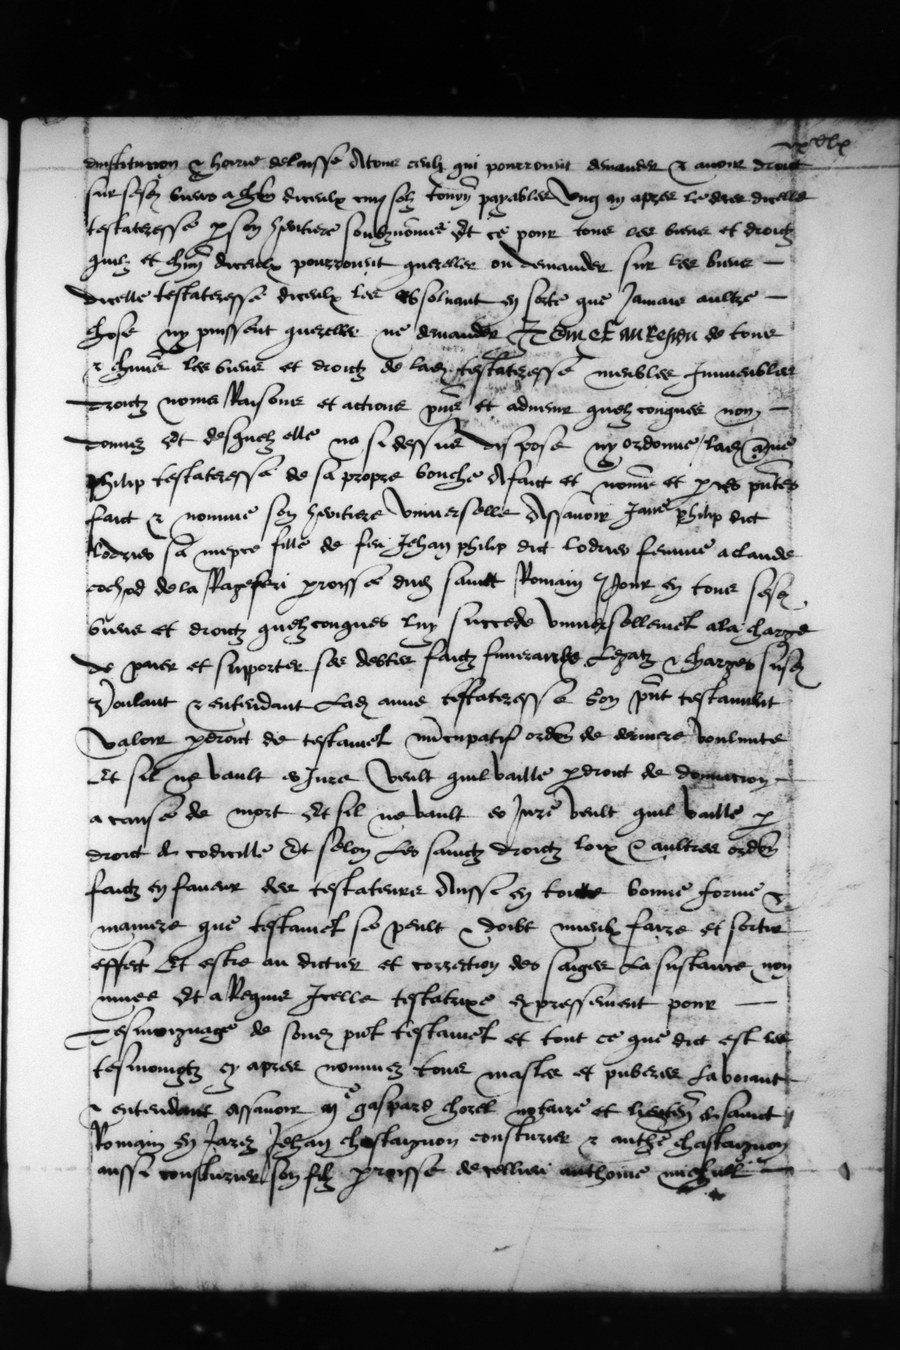 dinstitution & hoirie delaisse Atous ceulx qui pourroient demander & avoir droict
sur sesd biens a chun diceulx cinq solz tournois payables Ung an apres le deces dicelle
testateresse p son heritiere soubznomee Et ce pour tous les biens et droictz
quilz et chun diceulx pourroient quereller ou demander sur les biens
dicelle testateresse diceulx les Absoluant en sorte que Jamais aultre
chose ny puissent quereller ne demander Et au Residu de tous
& chuns les biens et droictz de lad testateresse meubles Immeubles
droictz noms Raisons et actions pns et advenir quelzconques non
donnez Et desquelz elle na si dessus dispose ny ordonne lad Anne
philip testateresse de sa propre bouche A faict et nomme et p ces pntes
faict & nomme son heritiere Universelle Assavoir Jane philip dict
lodries sa niepce fille de feu Jehan philip dict lodries femme a claude
cochod de la Rageferi proisse dud sainct Romain & Jour en tous sesd
biens et droictz quelzconques luy succede Universellemet a la charge
de paier et supporter ses debtes faictz funerailles Legatz & charges susd
Voulant & entendant Lad anne testateresse son pnt testament
Valoir p droict de testamet nuncupatif ordon de derniere voulunte
Et sil ne vault ou Jure Veult quil vaille p droict de donnation
a cause de mort Et sil ne vault ou Jure veult quil vaille p
droict de codicille Et selon Les sainctz droictz loix & aultres ordon
faictz en faveur des testateurs Aussi en toute bonne forme &
maniere que testamet se peult & doibt mieulx faire et sortir
effect Et estre au dictier et correction des saiges La sustance non
muee Et a Requis Icelle testatrixe expressement pour
Tesmoignage de sond pnt testamet et tout ce que dict est les
tesmoingtz en apres nommez tous masles et puberes La voiant
& entendant assavoir me gaspard chorel notaire et de sainct
Romain en Jarez Jehan chastaignon cousturier & anthe chastaignon
aussi cousturier son filz proisse de cellieu anthoine michiel